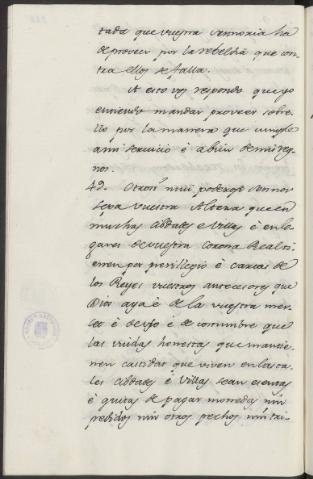 tada que vuestra sennoria ha
de proveer por la rebeldia que con
tra ellos se falla.
A esto vos respondo que yo
entiendo mandar proveer sobre
llo por la manera que cumple
a mi servicio é a bien de mis reg
nos.
42. Otrosi mui poderoso sennor
sepa vuestra Alteza que en
muchas cibdades é villas é en lo
gares de vuestra Corona Real tie
nen por previllegio é cartas de
los Reyes vuestros antecesores que
Dios aya é de la vuestra mer
ced é de uso é de costumbre que
las viudas honestas que mantie
nen castidat que viven en las ta
les cibdades é villas sean esentas
é quitas de pagar monedas nin
pedidos nin otros pechos nin tri-